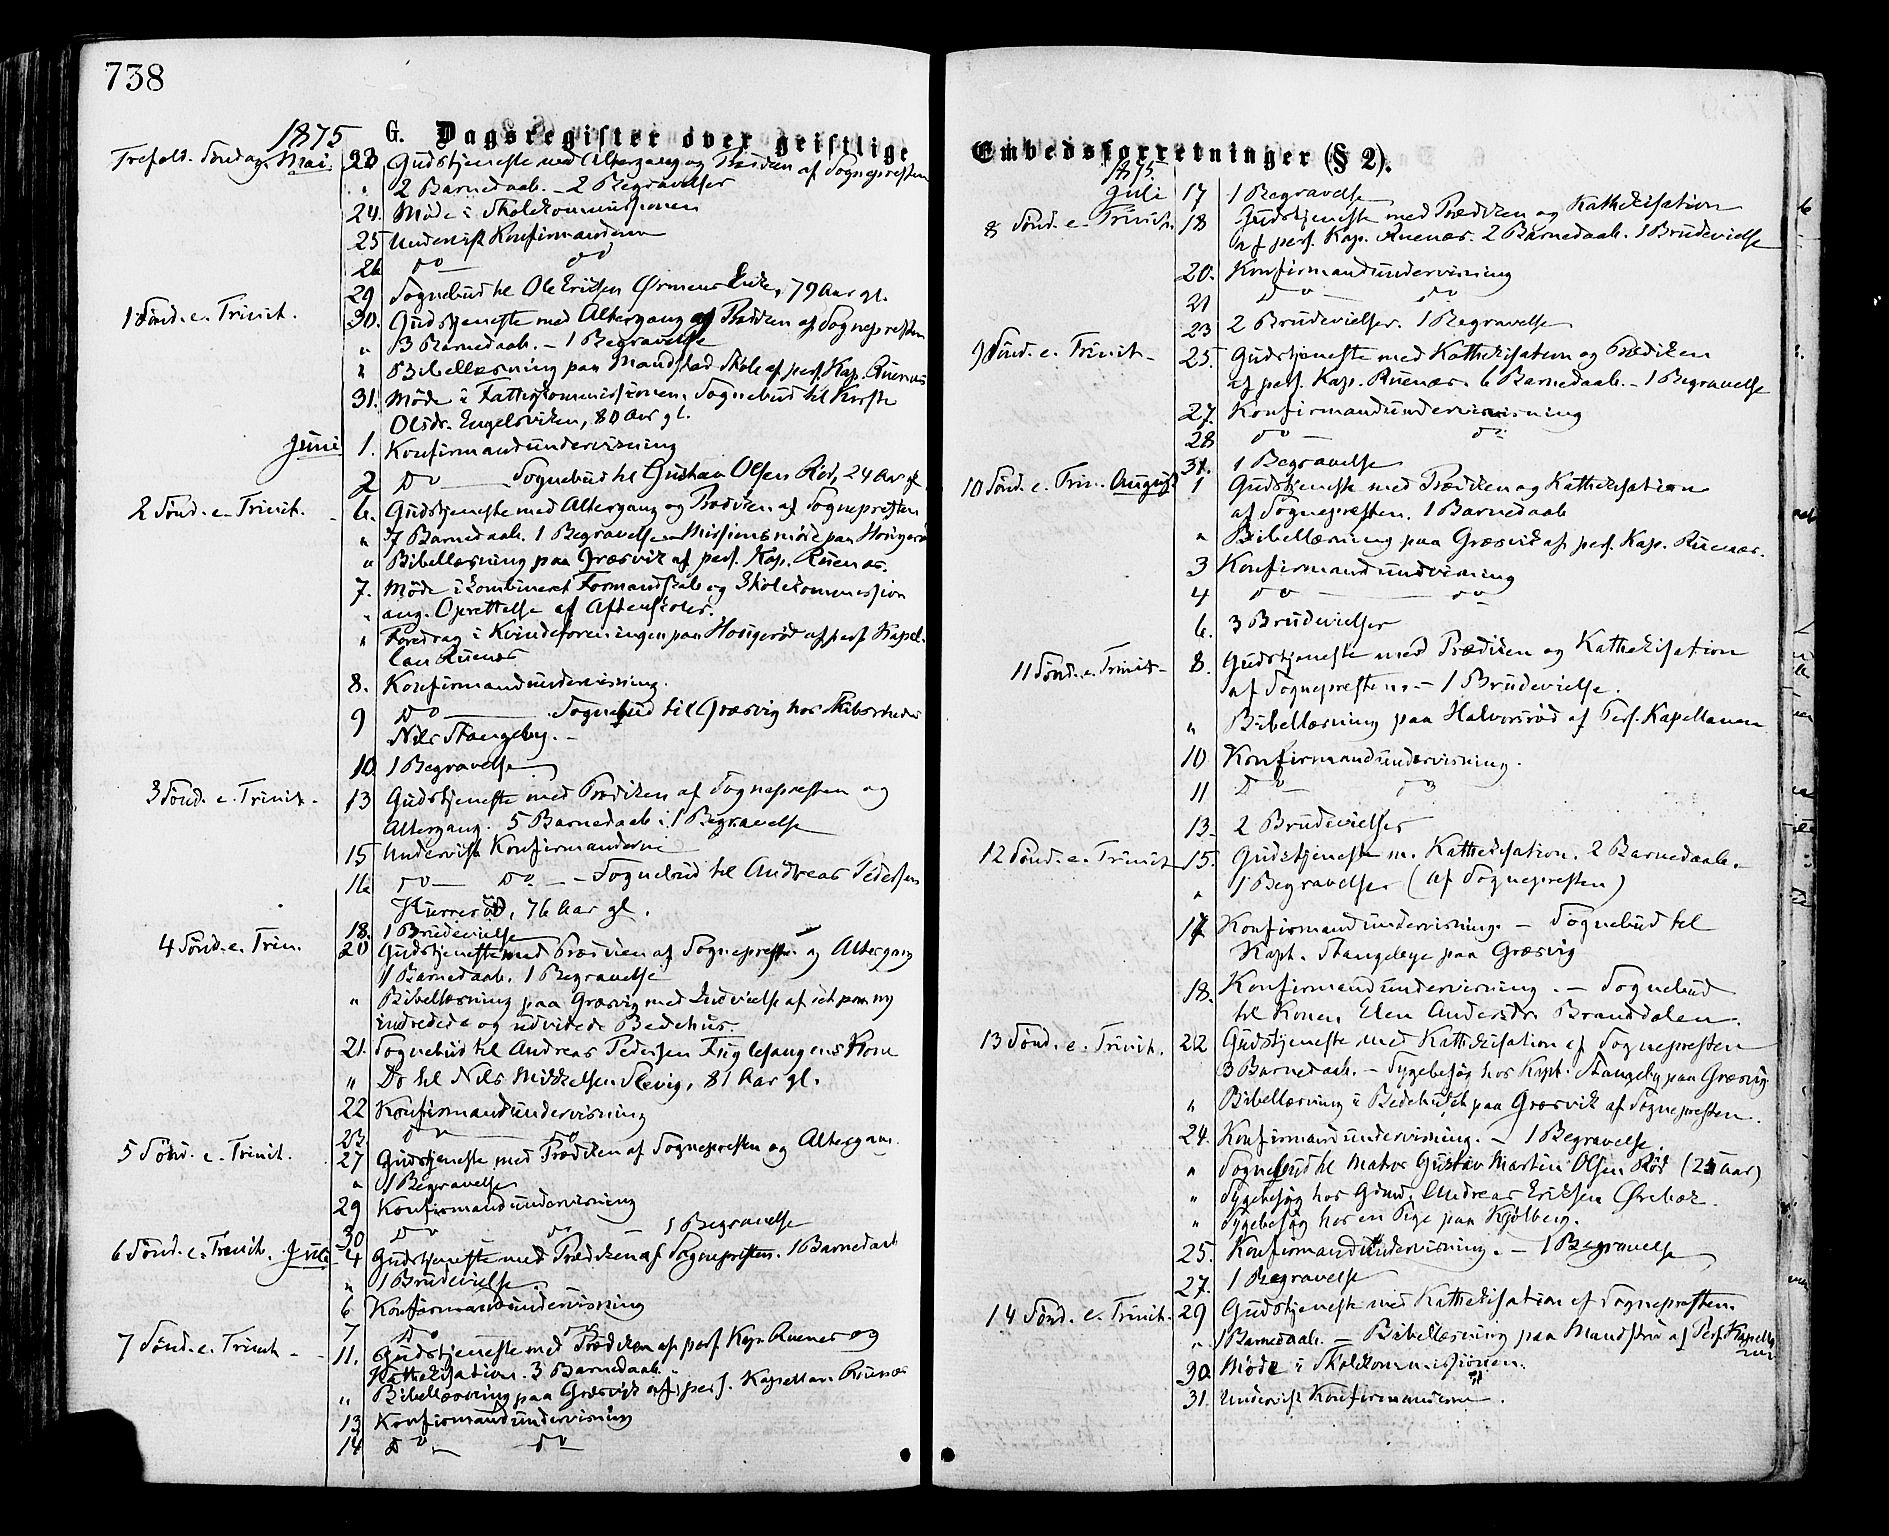 738
G. Dagsregister over geistlige
1875
Trefold. Søndag Mai 23 Gudstjeneste med Altergang og Prædiken af Sognepresten
" 2 Barnedaab. – 2 Begravelser
24. Møde i Skolekommissionen
25 Undervist Konfirmanderne
26 do — do
29 Sognebud til Ole Eriksen, 79 Aar gl.
1 Sønd. e. Trinit. 30. Gudstjeneste med Altergang og Prædiken af Sognepresten
" 3 Barnedaab. – 1 Begravelse
" Bibellæsning paa Mandstad Skole af pers. Kap. Ruenæs
31. Møde i Fattigkommissionen. Sognebud til
Olsdr. Engelsviken, 80 Aar gl.
Juni 1. Konfirmandundervisning
2 Do — Sognebud til Gustav Olsen Rød, 24 Aar gl.
2 Sønd. e. Trinit. – 6. Gudstjeneste med Altergang og Prædiken af Sognepresten
" 7 Barnedaab. 1 Begravelse – Missionsmøde paa Hougerød
" Bibellæsning paa Græsvik af pers. Kap. Ruenæs.
7. Møde i kombineret Formandskab og Skolekommission
" ang. Oprettelse af Aftenskoler.
" Foredrag i Kvindeforeningen paa Hougerød af pers. Kapel-
lan Ruenæs
8. Konfirmandundervisning.
9 Do — Sognebud til Græsvig hos Skibsreder
Nils Stangeby. –
10. 1 Begravelse
3 Sønd. e. Trinit. 13 Gudstjeneste med Prædiken af Sognepresten og
Altergang. 5 Barnedaab. 1 Begravelse
15 Undervist Konfirmanderne
16 do — Do. — – Sognebud til Andreas Pedersen
76 Aar gl.
18. 1 Brudevielse
4 Sønd. e. Trin. 20 Gudstjeneste med Prædiken af Sognepresten og Altergang
1 Barnedaab. 1 Begravelse
" Bibellæsning paa Græsvig med Indvielse af det paa ny
indredede og udvidede Bedehus.
21. Sognebud til Andreas Pedersen Fuglesangens Kone
" Do til Nils Mikkelsen Slevig, 81 Aar gl.
22 Konfirmandundervisning
23. do — do
5 Sønd. e. Trinit. 27 Gudstjeneste med Prædiken af Sognepresten og Altergan.
" 1 Begravelse
29 Konfirmandundervisning
30 Do do – 1 Begravelse
6 Sønd. e. Trinit. Juli 4 Gudstjeneste med Prædiken af Sognepresten. 1 Barnedaab
" 1 Brudevielse
6 Konfirmandundervisning
7 Do
7 Sønd. e. Trinit – 11. Gudstjeneste med Prædiken af pers. Kap. Ruenæs og
Kathekisation. 3 Barnedaab.
" Bibellæsning paa Græsvik af pers. Kapellan Ruenæs
13 Konfirmandundervisning
14 Do — do
Embedsforretninger (§ 2).
1875.
Juli 17 1 Begravelse
8 Sønd. e. Trinit. 18 Gudstjeneste med Prædiken og Kathekisation
af pers. Kap. Ruenæs. 2 Barnedaab. 1 Brudevielse
20. Konfirmandundervisning
21 Do — do
23 2 Brudevielser. 1 Begravelse
9 Sønd. e. Trinit – 25. Gudstjeneste med Kathekisation og Prædiken
af pers. Kap. Ruenæs. 6 Barnedaab. – 1 Begravelse
27. Konfirmandundervisning
28 do — do
31. 1 Begravelse
10 Sønd. e. Trin. August 1 Gudstjeneste med Prædiken og Kathekisation
af Sognepresten. 1 Barnedaab
" Bibellæsning paa Græsvik af pers. Kap. Ruenæs.
3 Konfirmandundervisning
4 do — do
6. 3 Brudevielser
11 Sønd. e. Trinit – 8. Gudstjeneste med Prædiken og Kathekisation
af Sognepresten. – 1 Brudevielse.
" Bibellæsning paa Halvorsrød af Pers. Kapellanen
10 Konfirmandundervisning.
11 Do — do
13. 2 Brudevielser
12 Sønd. e. Trinit 15. Gudstjeneste m. Kathekisation. 2 Barnedaab.
" 1 Begravelse (af Sognepresten)
17 Konfirmandundervisning. – Sognebud til
Kapt. Stangebye paa Græsvig
18. Konfirmandundervisning. – Sognebud
til Konen Elen Andersdr. Branddalen.
13 Sønd. e. Trinit. 22 Gudstjeneste med Kathekisation af Sognepresten
3 Barnedaab. – Sygebesøg hos Kapt. Stangeby paa Græsvig
" Bibellæsning i Bedehuset paa Græsvik af Sognepresten.
24. Konfirmandundervisning. – 1 Begravelse.
" Sognebud til Matros Gustav Martin Olsen Rød (25 aar)
" Sygebesøg hos Gmd. Andreas Eriksen Ørebæk.
" Sygebesøg hos en Pige paa Kjølberg.
25. Konfirmandundervisning. – 1 Begravelse
27. 1 Begravelse
14 Sønd. e. Trinit. 29 Gudstjeneste med Kathekisation af Sognepresten.
" 1 Barnedaab. – Bibellæsning paa Mandstad af Pers. Kapella-
nen
30. Møde i Skolekommissionen.
31. Undervist Konfirmanderne.